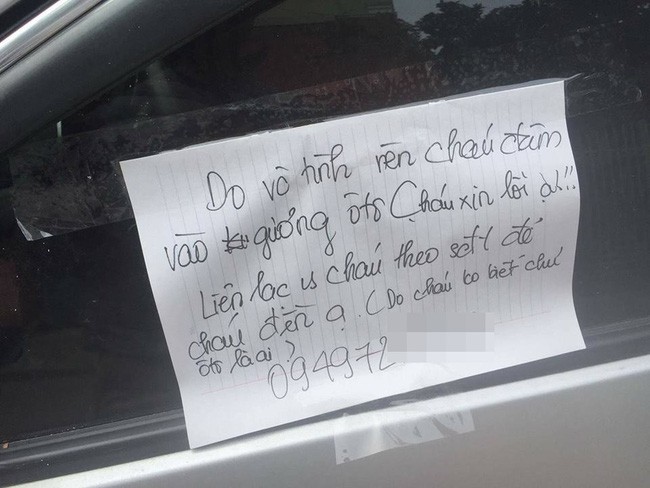 Do vô tình nên cháu đâm
vào gương ôtô Cháu xin lỗi ạ!!
Liên lạc vs cháu theo sđt để
cháu đền ạ. (Do cháu ko biết chủ
ôtô là ai)
094972